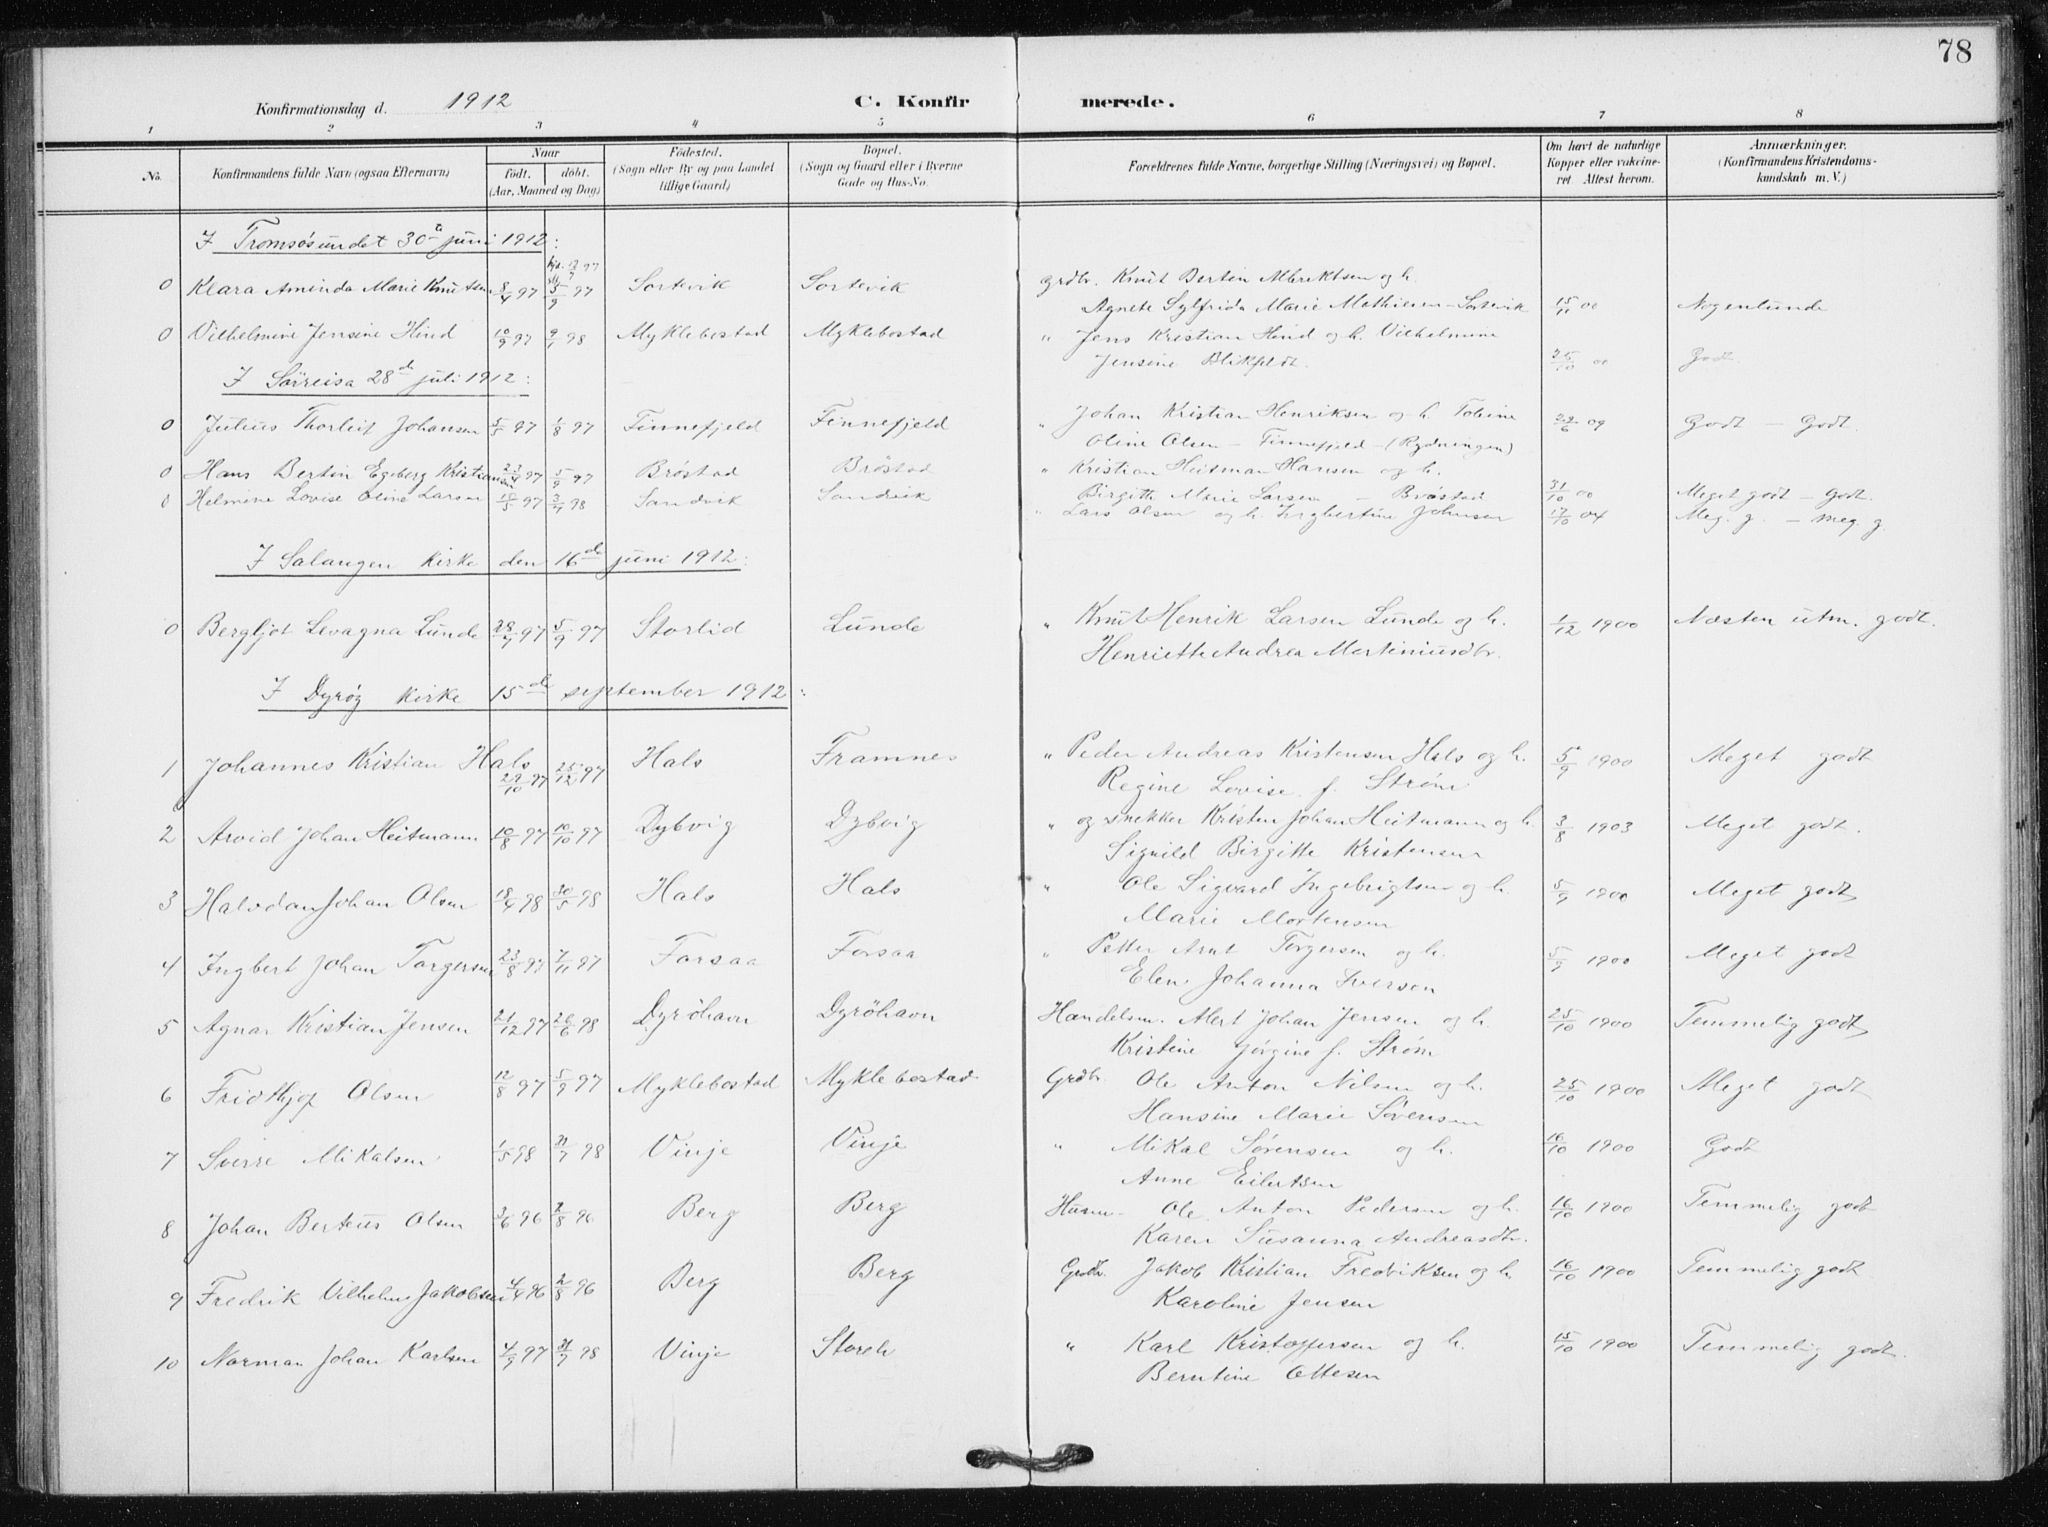 78
Konfirmationsdag d. 1912 C. Konfir merede.
1 2 3 4 5 6 7 8
No. Konfirmandens fulde Navn (ogsaa Efternavn) Naar født. døbt. (Aar, Maaned og Dag) Fødested. (Sogn eller By og paa Landet tillige Gaard) Bopæl. (Sogn og Gaard eller i Byerne Gade og Hus-No. Forældrenes fulde Navne, borgerlige Stilling (Næringsvei) og Bopæl. Om havt de naturlige Kopper eller vakcineret. Attest herom. Anmærkninger. (Konfirmandens Kristendomskundskab m. V.)
I Tromsøsundet 30te juni 1912:
0 Klara Aminda Marie Knutsen 8/4 97 5/9 97 Sortevik Sortevik grdbr. Knut Berten Albriktsen og h.
Agnete Sylfrida Marie Mathiesen - Sortevik 15/11 00 Nogenlunde
0 Vilhelmine Jensine Hind 10/9 97 9/1 98 Myklebostad Myklebostad " Jens Kristian Hind og h. Vilhelmine
Jensine Blikfeldt. 25/10 00 Godt.
I Sørreisa 28de juli 1912:
0 Julius Thorleif Johansen 5/5 97 1/8 97 Finnefjeld Finnefjeld " Johan Kristian Henriksen og h. Tobine
Oline Olsen - Finnefjeld - (Rydningen) 29/6 09 Godt - Godt.
0 Hans Bertin Egeberg Kristiansen 23/4 97 5/9 97 Brøstad Brøstad " Kristian Heitman Hansen og h.
Birgitte Marie Larsen - Brøstad 31/10 00 Meget godt - Godt.
0 Helmine Lovise Oline Larsen 10/5 97 3/7 98 Sandvik Sandvik " Lars Olsen og h. Ingbertine Johnsen 17/10 04 Meg. g. - meg. g.
I Salangen kirke den 16de juni 1912:
0 Bergljot Levagna Lunde 28/7 97 5/9 97 Storlid Lunde " Knut Henrik Larsen Lunde og h.
Henriette Andrea Martiniusdtr. 1/12 1900 Næsten utm. godt.
I Dyrøy kirke 15de september 1912:
1 Johannes Kristian Hals 29/10 97 25/12 97 Hals Framnes " Peder Andreas Kristensen Hals og h.
Regine Lovise f. Strøm 5/9 1900 Meget godt
2 Arvid Johan Heitmann 10/8 97 10/10 97 Dybvig Dybvig " og snekker Kristen Johan Heitmann og h.
Signild Birgitte Kristensen 3/8 1903 Meget godt.
3 Halvdan Johan Olsen 18/4 98 30/5 98 Hals Hals " Ole Sigvard Ingebrigtsen og h.
Marie Mortensen 5/9 1900 Meget godt
4 Ingbert Johan Torgersen 23/8 97 7/11 97 Forsaa Forsaa " Petter Arnt Torgersen og h.
Elen Johanna Iversen 5/9 1900 Meget godt
5 Agnar Kristian Jensen 21/12 97 26/6 98 Dyrøhavn Dyrøhavn Handelsm. Albert Johan Jensen og h.
Kristine Jørgine f. Strøm 25/10 1900 Temmelig godt
6 Fridthjof Olsen 12/8 97 5/9 97 Myklebostad Myklebostad Grdbr. Ole Anton Nilsen og h.
Hansine Marie Sørensen 25/10 1900 Meget godt
7 Sverre Mikalsen 1/5 98 31/7 98 Vinje Vinje " Mikal Sørensen og h.
Anne Eilertsen 16/10 1900 Godt
8 Johan Berteus Olsen 3/6 96 2/8 96 Berg Berg Husm. Ole Anton Pedersen og h.
Karen Susanna Andreasdtr. 16/10 1900 Temmelig godt
9 Fredrik Vilhelm Jakobsen 4/4 96 2/8 96 Berg Berg Grdbr. Jakob Kristian Fredriksen og h.
Karoline Jensen 16/10 1900 Temmelig godt
10 Norman Johan Karlsen 4/9 97 31/7 98 Vinje " Karl Kristoffersen og h.
Berntine Ottesen 15/10 1900 Temmelig godt.